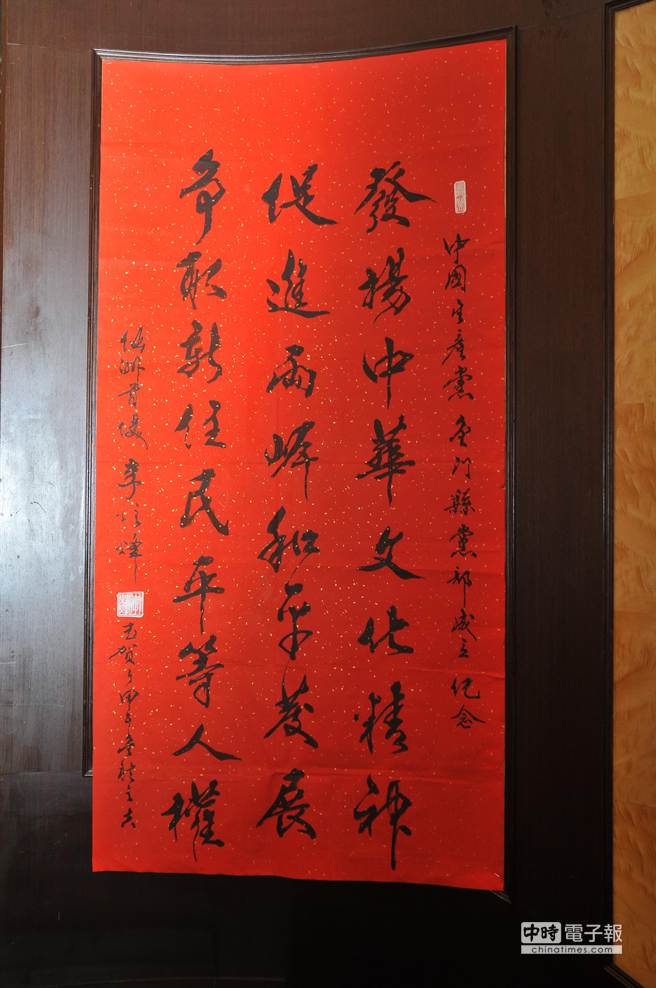 中國生產黨金門縣黨部成立紀念
發揚中華文化精神
促進兩岸和平發展
争取新住民平等人權
李
賀 甲午 之吉
中時電子報
chinatimes.com